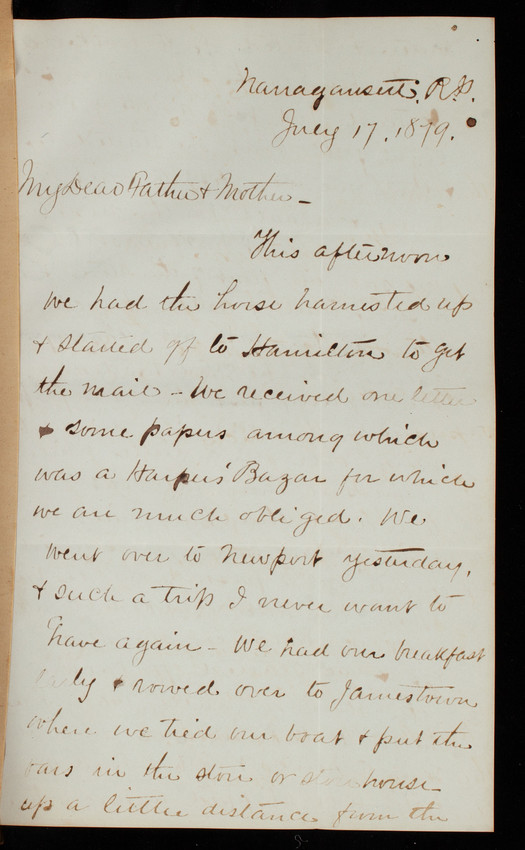 Narragansett. R.I.
July 17. 1879.
My Dear Father & Mother -
This afternoon
we had the horse harnested up
& started off to Hamilton to get
the mail - We received one letter
& some papers among which
was a Harpers' Bazar for which
we are much obliged. We
went over to Newport yesterday,
& such a trip I never want to
have again - We had our breakfast
& rowed over to Jamestown
where we tied our boat & put the
oars in the store or house
up a little distance from the